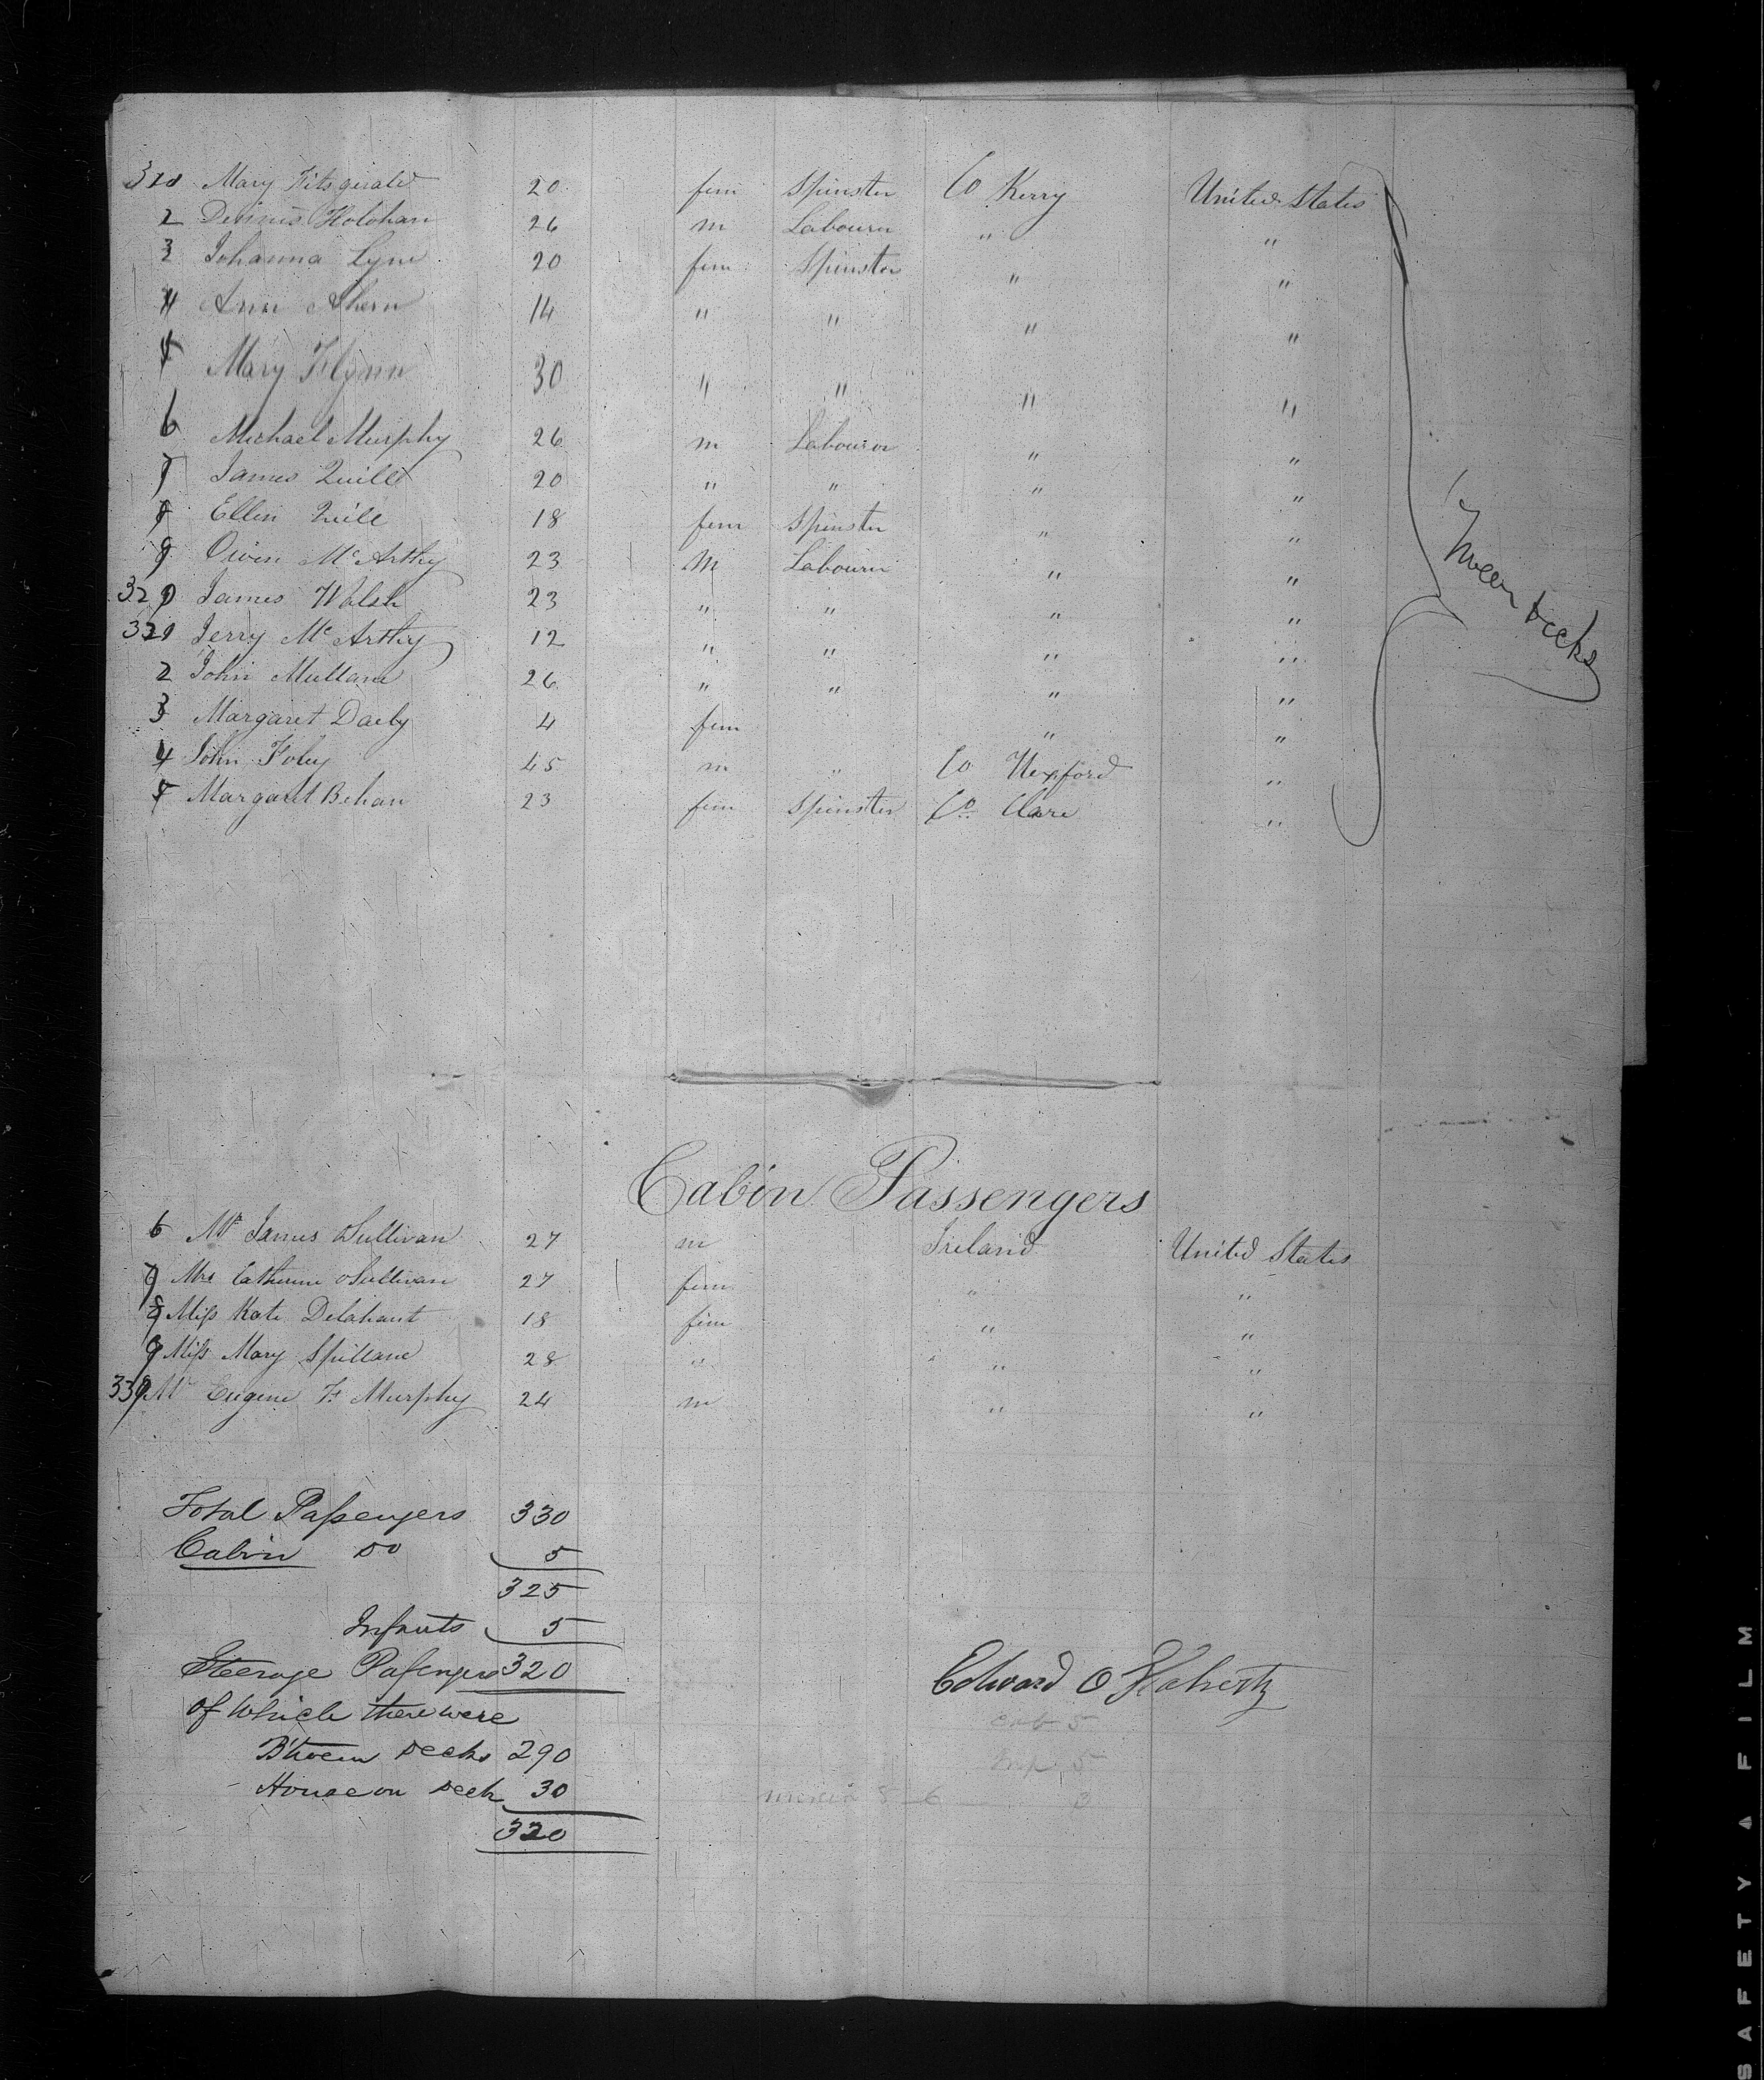 Mary Fitzgerald 20 fem Spinster Co Kerry United States
2 Dennis Holohan 26 m Labourer " "
3 Johanna Lyne 20 fem Spinster " "
4 Ann Ahern 14 " " " "
5 Mary Flynn 30 " " " "
6 Michael Murphy 26 m Labourer " "
7 James Quill 20 " " " "
8 Ellen Quill 18 fem Spinster " "
9 Owen McArthy 23 m Labourer " "
320 James Walsh 23 " " " "
321 Jerry McArthy 12 " " " "
2 John Mullane 26 " " " "
3 Margaret Daely 4 fem " "
4 John Foley 45 m " Co Wexford "
5 Margaret Behan 23 fem Spinster Co. Clare "
'Tween Decks
Cabin Passengers
6 Mr James OSullivan 27 m Ireland United States
7 Mrs Catherine OSullivan 27 fem " "
8 Miss Kate Delahant 18 fem " "
9 Miss Mary Spillane 28 " " "
330 Mr Eugene F. Murphy 24 m " "
Total Passengers 330
Cabin Do 5
325
Infants 5
Steerage Passengers 320
of which there were
B'tween Decks 290
House on Deck 30
320
Edward O Flaherty
cab 5
Inf 5
SAFETY FILM